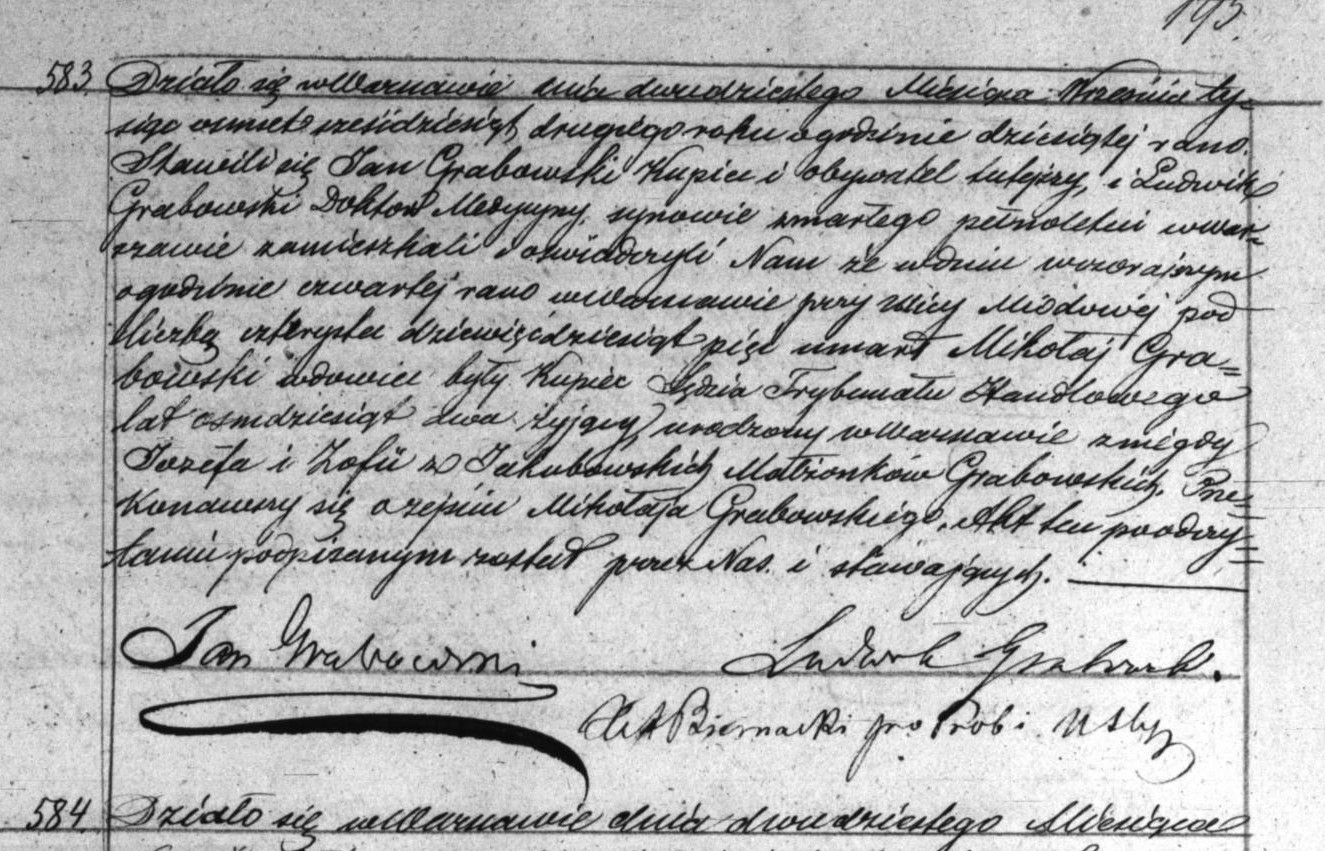 195.
583. Działo się w Warszawie dnia dwudziestego Miesiąca Września ty-
siąc ośmset sześćdziesiąt drugiego roku o godzinie dziesiątej rano.
Stawili się Jan Grabowski Kupiec i obywatel tutejszy, i Ludwik
Grabowski Doktor Medycyny, synowie zmarłego pełnoletni w War-
szawie zamieszkali i oświadczyli Nam że w dniu wczorajszym
o godzinie czwartej rano w Warszawie przy ulicy Miodowéj pod
liczbą czterysta dziewięćdziesiąt pięć umarł Mikołaj Gra=
bowski wdowiec były Kupiec Sędzia Trybunału Handlowego
lat ośmdziesiąt dwa żyjący, urodzony w Warszawie z niegdy
Józefa i Zofii z Jakubowskich Małżonków Grabowskich. Prze=
konawszy się o zejściu Mikołaja Grabowskiego, Akt ten po odczy=
taniu podpisanym został przez Nas. i stawających.
Jan Grabowski Ludwik Grabowski.
X A Biernacki pro Prob i
584. Działo się w Warszawie dnia dwudziestego Miesiąca